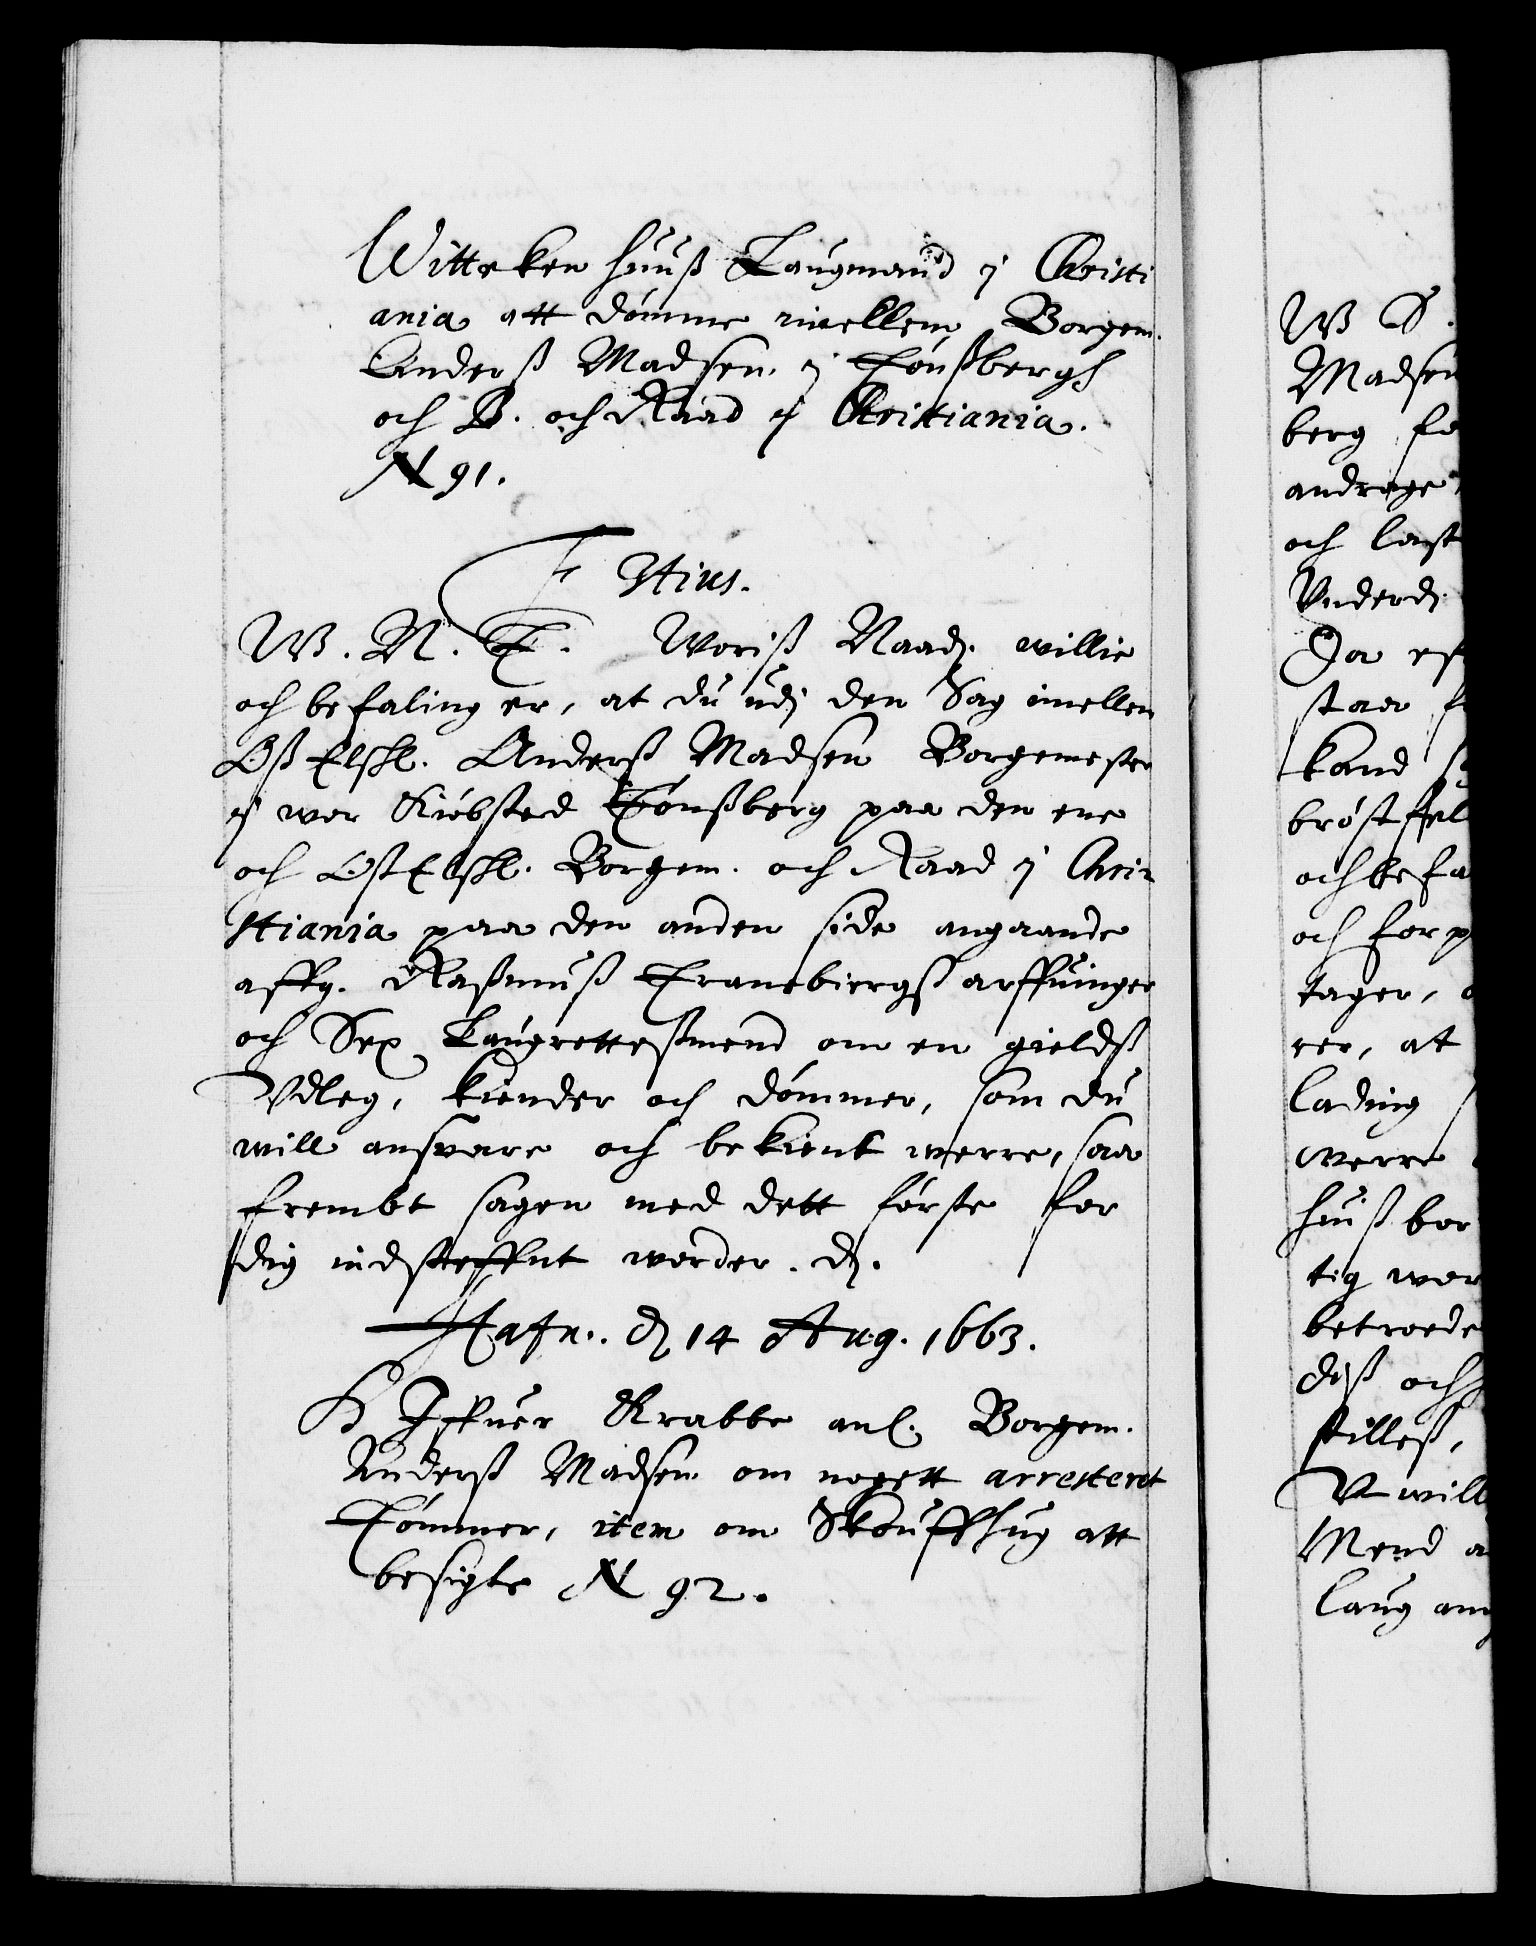 Witteken Huuß Laugmand j Christi
ania att dømme imellem Borgem.
Anderß Madsen j Tønßbergh
och B. och Raad j Christiania.
N 91.
F 3tius.
W. N. T. Woriß Naad. willie
och befaling er, at du udj den Sag imellem
Oß Elskl. Anderß Madsen Borgemester
j wor Kiøbsted Tønßberg paa den ene
och Oß Elskl. Borgem. och Raad j Chri-
stiania paa den anden side angaaende
affg. Raßmuß Tranebiergß arffuinger
och Sex Laugretteßmend om en gieldß
Vdleg, kiender och dømmer, som du
will ansvare och bekient werre, saa
frembt sagen med dett første for
dig indsteffnt worder. dj.
Hafn. dj 14 Aug. 1663.
H Iffuer Krabbe anl. Borgem.
Anderß Madsen om nogett arresterit
Tømmer, item om Skouffhug att
besigte N 92.
W S.
Madsen
berg fo
andrage
och last
Vnderdj
Da eft
staa f
kand
brøstfel
och befa
och for p
tager,
rer, at
lading
werre
huuß bor
tig wor
betroede
diß och
stilleß,
V will
Mend a
laug an